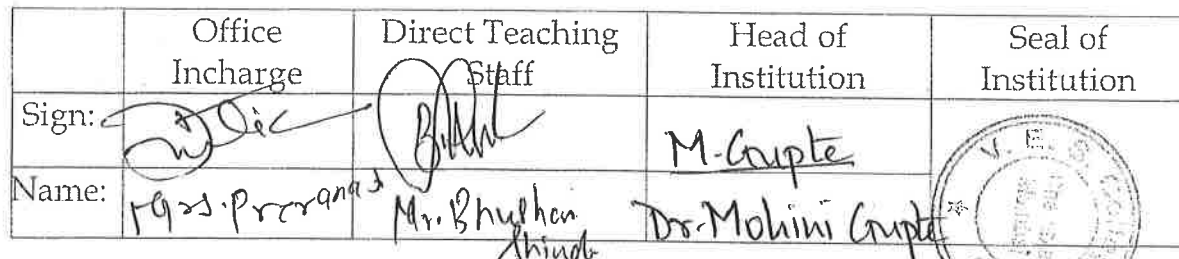 Office Incharge Direct Teaching Staff Head of Institution Seal of Institution
Sign: M. Gupte
Name: Mrs. Prerana Mr. Bhushan Shinde Dr. Mohini Gupte
V. E. S.